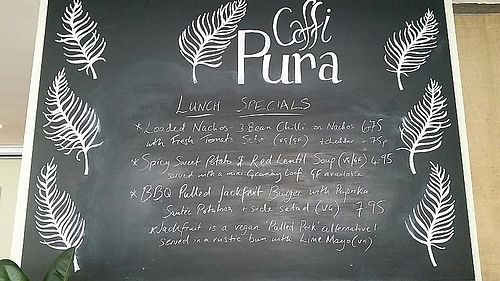 Caffi
Pura
LUNCH SPECIALS
* Loaded Nachos - 3 Bean Chilli on Nachos 6.75
with Fresh Tomato Salsa (VG/GF) + cheddar + 75p
* Spicy Sweet Potato & Red Lentil Soup (VG/GF) 4.95
served with a mini Granary Loaf. GF available
* BBQ Pulled Jackfruit Burger with Paprika
Sautee Potatoes + side salad (VG) 7.95
*Jackfruit is a vegan 'Pulled Pork' alternative!
served in a rustic bun with Lime Mayo (VG)